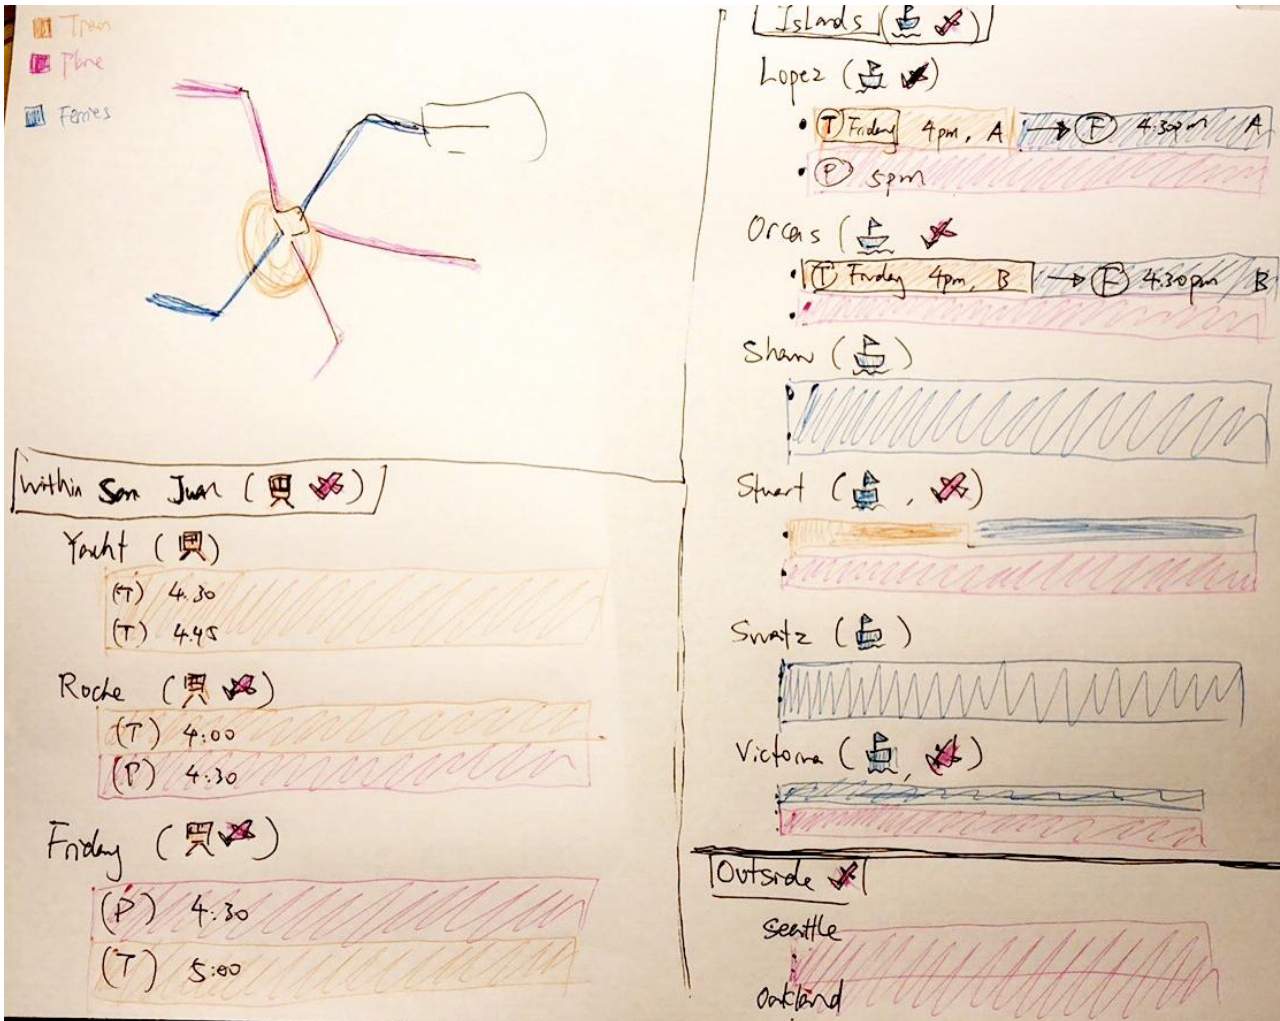 Train
Plane
Ferries
Within San Juan ( )
Yacht ( )
(T) 4:30
(T) 4:45
Roche ( )
(T) 4:00
(P) 4:30
Friday ( )
(P) 4:30
(T) 5:00
Islands ( )
Lopez ( )
• T Friday 4pm, A → F 4:30pm A
• P 5pm
Orcas (
• T Friday 4pm, B → F 4:30pm B
Shaw ( )
Stuart ( , )
Swatz ( )
Victoria ( , )
Outside
Seattle
Oakland